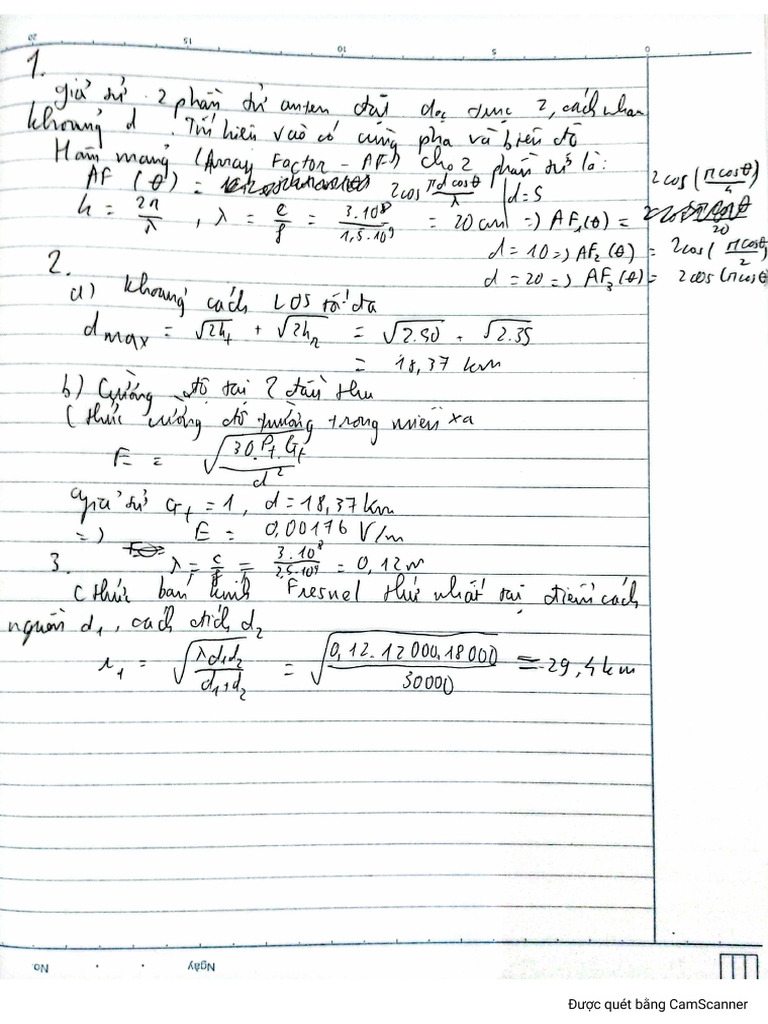 20 15 10 5 0
1.
giả sử 2 phần tử anten đặt dọc trục z, cách nhau
khoảng d. Tín hiệu vào có cùng pha và biên độ
Hàm mảng (Array Factor - AF) cho 2 phần tử là:
AF (θ) = 2cos πd cosθ / λ | d=5
k = 2π/λ , λ = c/f = 3.10⁸ / 1,5.10⁹ = 20 cm => AF₁(θ) = 2cos(πcosθ/4)
d = 10 => AF₂(θ) = 2cos(πcosθ/2)
d = 20 => AF₃(θ) = 2cos(πcosθ
2.
a) Khoảng cách LOS tối đa
d max = √2h₁ + √2h₂ = √2.50 + √2.35
= 18,37 km
b) Cường độ tại 2 đầu thu
C thức cường độ trường trong miền xa
E = √(30.Pt.Gt / d²)
Giả sử Gt = 1, d = 18,37 km
=> E = 0,00176 V/m
3. λ = c/f = 3.10⁸ / 2,5.10⁹ = 0,12m
C thức bán kính Fresnel thứ nhất tại điểm cách
nguồn d₁, cách đích d₂
r₁ = √(λd₁d₂ / d₁+d₂) = √(0,12.12000.18000 / 30000) = 29,4 km
No. Ngày
Được quét bằng CamScanner